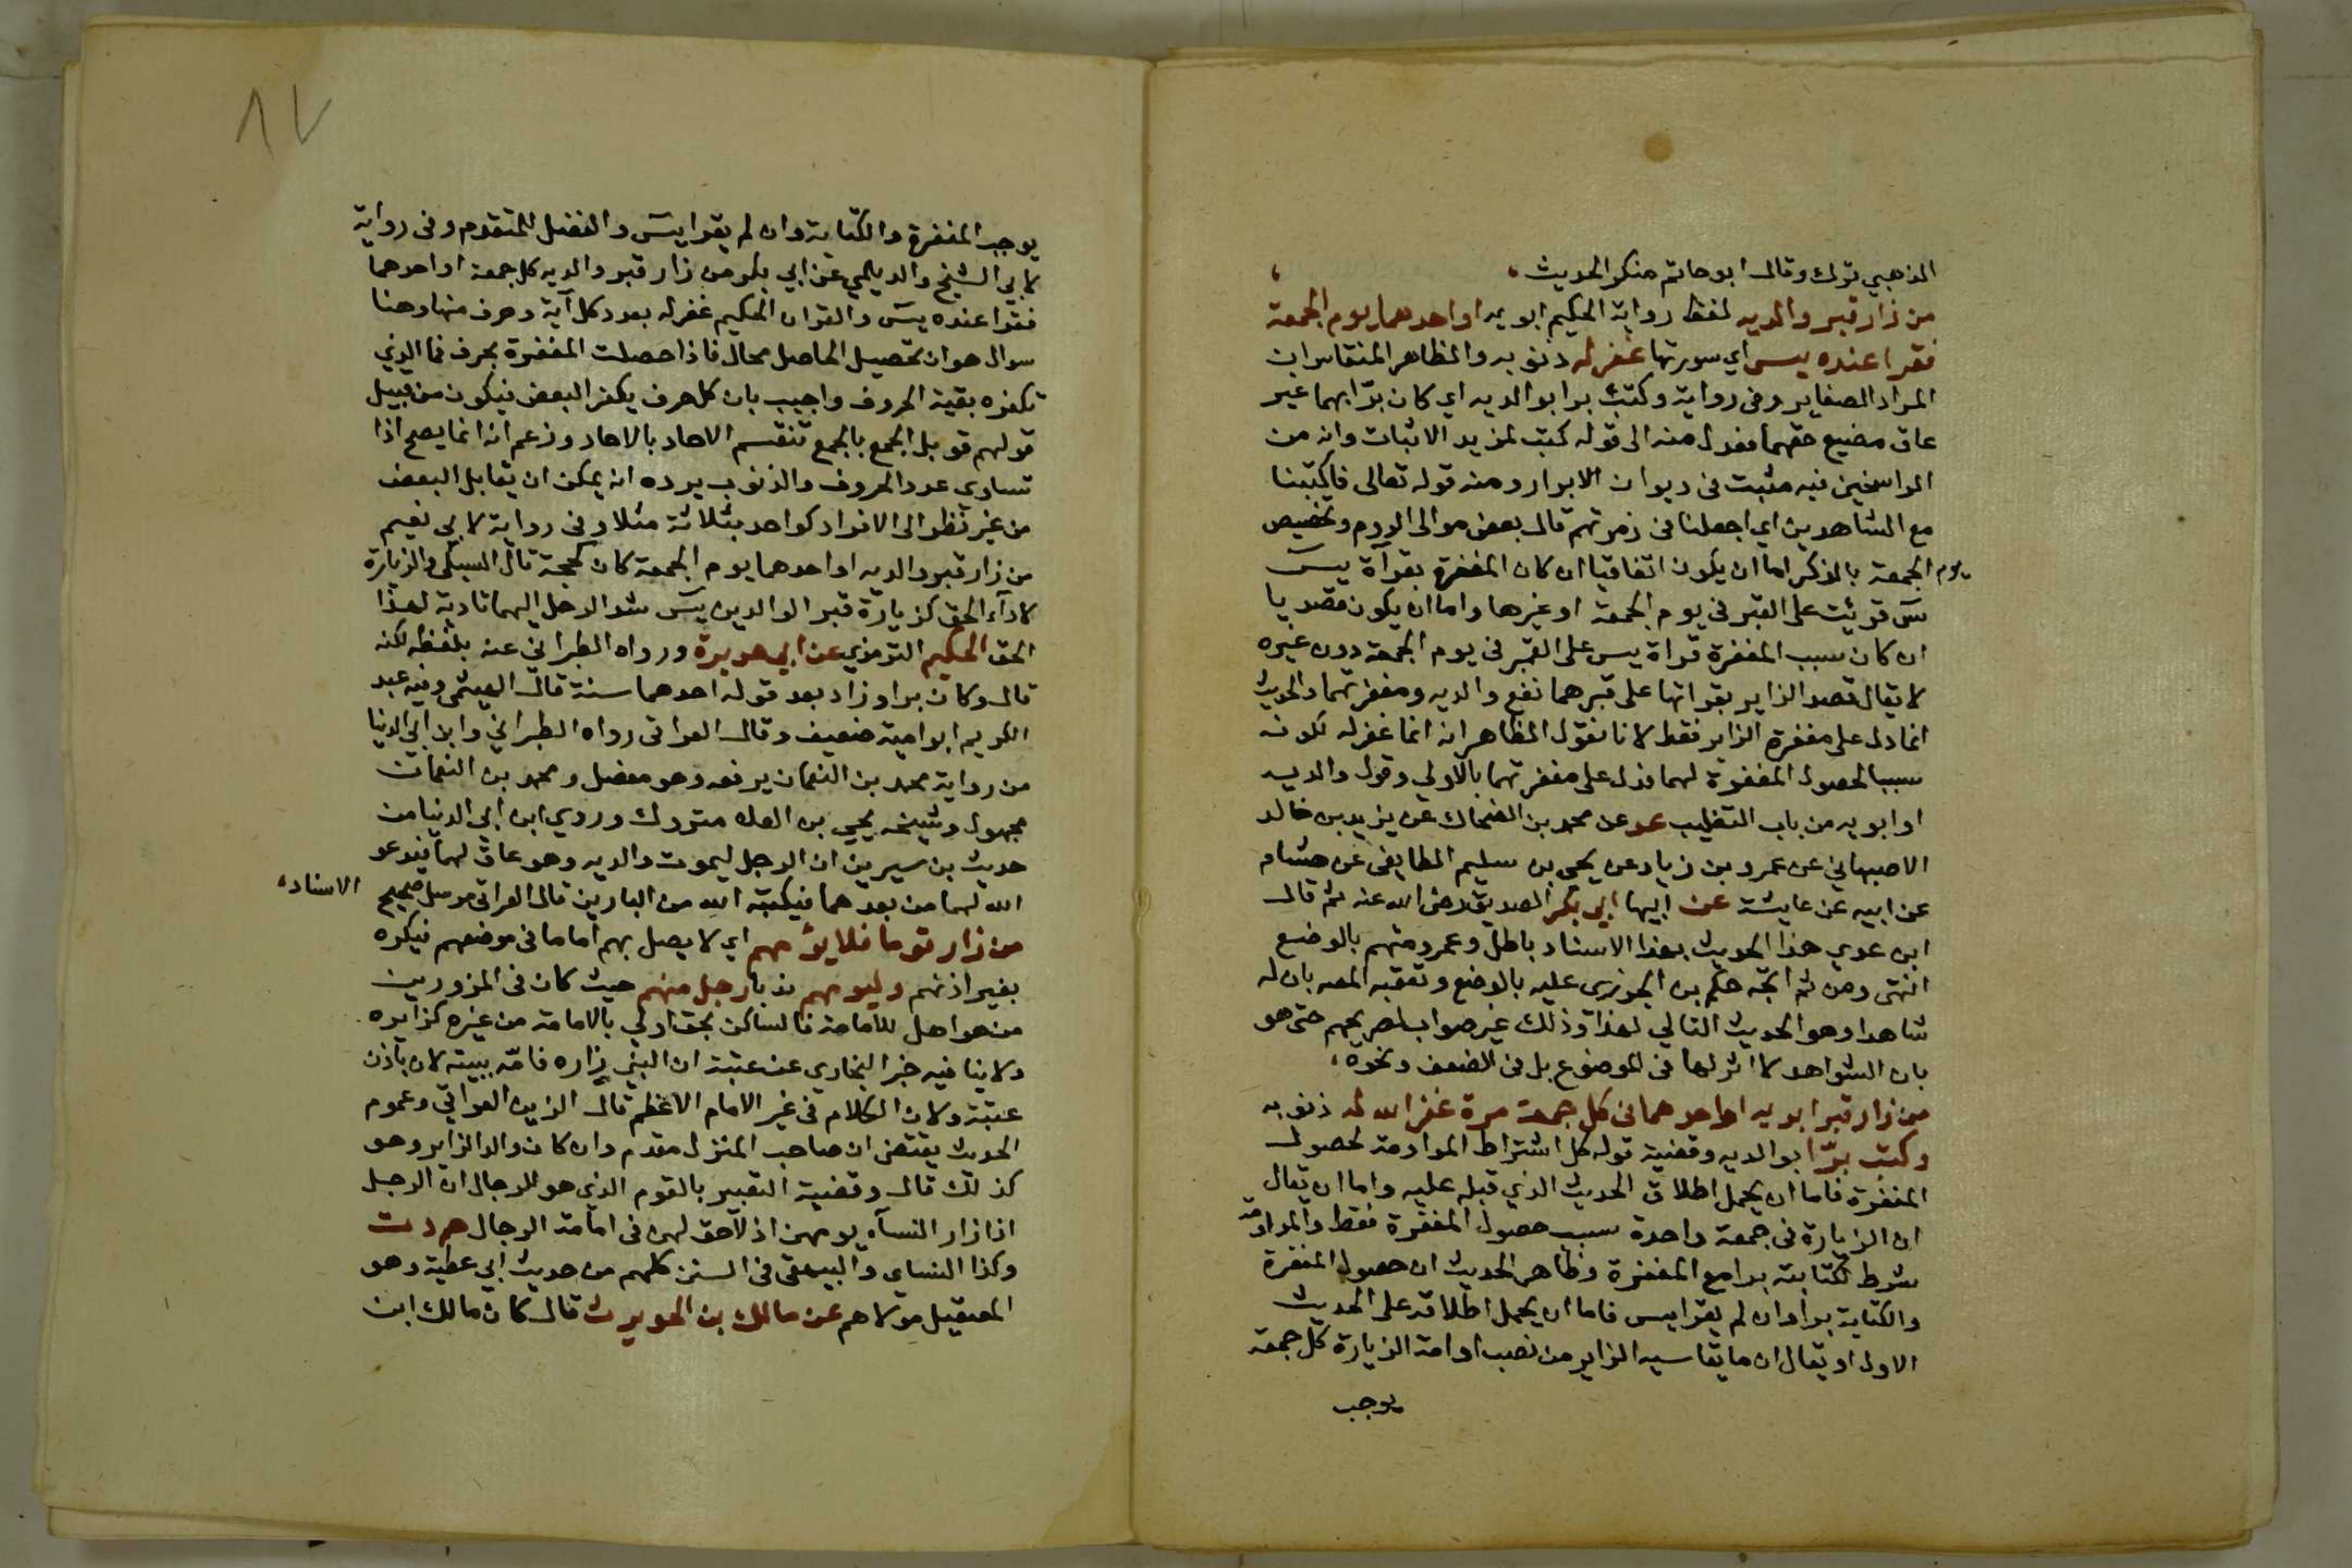 الذهبي ترك وقال ابو حاتم منكر الحديث
من زار قبر والديه لفظ رواية الحكيم ابويه او احدهما يوم الجمعة
فقرا عنده يس اي سورتها غفر له ذنوبه والظاهر المنقاس ان
المراد الصغاير وفي رواية وكتب برا بوالديه اي كان برّا بهما غير
عاق مضيع حقهما فعدل منه الى قوله كتب لمزيد الاثبات وانه من
الراسخين فيه مثبت في ديوان الابرار ومنه قوله تعالى فاكتبنا
مع الشاهدين اي اجعلنا في زمرتهم قال بعض موالي الروم وتخصيص
يوم الجمعة بالذكر اما ان يكون اتفاقيا ان كان المغفرة بقرآة يسٓ
سٓ قريت على القبر في يوم الجمعة او غيرها واما ان يكون قصديا
ان كان سبب المغفرة قراة يس على القبر في يوم الجمعة دون غيره
لا يقال قصد الزاير بقراتها على قبرهما نفع والديه ومغفرتهما والحديث
انما دل على مغفرة الزاير فقط لانا نقول الظاهر انه انما غفر له لكونه
سببا لحصول المغفرة لهما فدل على مغفرتهما بالاولي وقول والديه
او ابويه من باب التغليب عد عن محمد بن الضحاك عن يزيد بن خالد
الاصبهاني عن عمرو بن زياد عن يحيى بن سليم الطايفي عن هشام
عن ابيه عن عايشة عن ابيها ابي بكر الصديق رضى الله عنه ثم قال
ابن عدي هذا الحديث بهذا الاسناد باطل وعمرو متهم بالوضع
انتهى ومن ثم اتجه حكم بن الجوزى عليه بالوضع وتعقبه المصه بان له
شاهدا وهو الحديث التالي لهذا وذلك غير صواب لصريحهم حتى هو
بان الشواهد لا اثر لها في الموضوع بل في الضعف ونحوه
من زار قبر ابويه او احدهما في كل جمعة مرة غفر الله له ذنوبه
وكتب برّا بوالديه وقضية قوله كل اشتراط المداومة لحصول
المغفرة فاما ان يحمل اطلاق الحديث الذي قبله عليه واما ان يقال
ان الزيارة في جمعة واحدة سبب حصول المغفرة فقط والمداومة
شرط لكتابته برا مع المغفرة وظاهر الحديث ان حصول المغفرة
والكتابة برا وان لم يقرا يس فاما ان يحمل اطلاقه على الحديث
الاول او يقال ان ما يقاسيه الزاير من نصب ادامة الزيارة كل جمعة
يوجب
٨٧
يوجب المغفرة والكتابة وان لم يقرا يسٓ والفضل للمتقدم وفي رواية
لابي الشيخ والديلمي عن ابي بكر من زار قبر والديه كل جمعة او احدهما
فقرا عنده يسٓ والقران الحكيم غفر له بعدد كل آية وحرف منها وهنا
سوال هو ان تحصيل الحاصل محال فاذا حصلت المغفرة بحرف فما الذي
تكفره بقية الحروف واجيب بان كل حرف يكفر البعض فيكون من قبيل
قولهم قوبل الجمع بالجمع تنقسم الاحاد بالاحاد وزعم انه انما يصح اذا
تساوي عدد الحروف والذنوب يرده انه يمكن ان يقابل البعض
من غير نظر الى الافراد كواحد بثلاثة مثلا وفي رواية لابي نعيم
من زار قبر والديه او احدهما يوم الجمعة كان كحجة قال السبكي والزيارة
لادآء الحق كزيارة قبر الوالدين يسٓ شد الرحل اليهما تادية لهذا
الحق الحكيم الترمذي عن ابي هريرة ورواه الطبراني عنه بلفظه لكنه
قال وكان برا وزاد بعد قوله احدهما سنة قال الهيثمي وفيه عبد
الكريم ابو امية ضعيف وقال العراقى رواه الطبراني وابن ابي الدنيا
من رواية محمد بن النعمان يرفعه وهو معضل ومحمد بن النعمان
مجهول وشيخه يحيى بن العلا متروك وروي ابن ابي الدنيا من
حديث بن سيرين ان الرجل ليموت والديه وهو عاق لهما فيدعو
الله لهما من بعدهما فيكتبه الله من البارين قال العراقى مرسل صحيح الاسناد
من زار قوما فلا يؤمهم اي لا يصل بهم اماما في موضعهم فيكره
بغير اذنهم وليومهم ندبا رجل منهم حيث كان في المزورين
من هو اهل للامامة فالساكن بحق اولي بالامامة من غيره كزايره
ولا ينافيه خبر البخاري عن عتبة ان النبي زاره فامّه ببيته لان باذن
عتبة ولان الكلام في غير الامام الاعظم قال الزين العراقي وعموم
الحديث يقتضى ان صاحب المنزل مقدم وان كان والد الزاير وهو
كذلك قال وقضية التعبير بالقوم الذي هو للرجال ان الرجل
اذا زار النسآء يومهن اذ لا حق لهن في امامة الرجال حم د ت
وكذا النساي والبيهقى في السنن كلهم من حديث ابي عطية وهو
المعقيل مولاهم عن مالك بن الحويرث قال كان مالك ابن